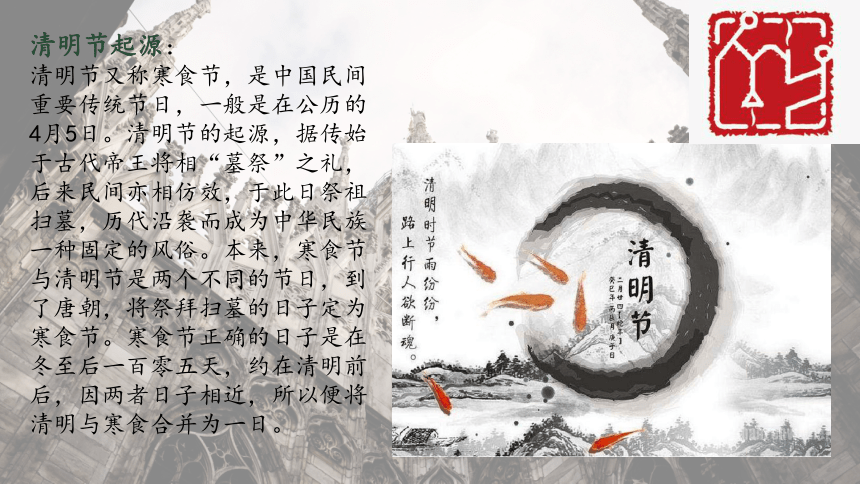 清明节起源：
清明节又称寒食节，是中国民间
重要传统节日，一般是在公历的
4月5日。清明节的起源，据传始
于古代帝王将相“墓祭”之礼，
后来民间亦相仿效，于此日祭祖
扫墓，历代沿袭而成为中华民族
一种固定的风俗。本来，寒食节
与清明节是两个不同的节日，到
了唐朝，将祭拜扫墓的日子定为
寒食节。寒食节正确的日子是在
冬至后一百零五天，约在清明前
后，因两者日子相近，所以便将
清明与寒食合并为一日。
清明时节雨纷纷，
路上行人欲断魂。
清明节
二月廿四【蛇年】
癸巳年 丙辰月 庚子日